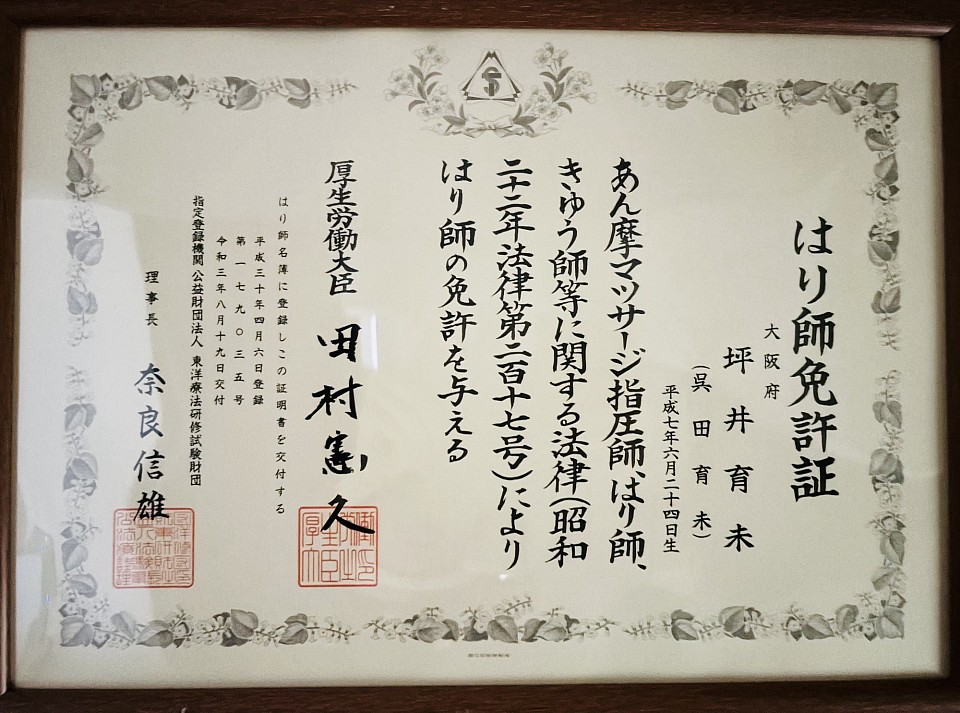 はり師免許証
大阪府
坪井育未
(呉田育未)
平成七年六月二十四日生
あん摩マツサージ指圧師、はり師、
きゆう師等に関する法律(昭和
二十二年法律第二百十七号)により
はり師の免許を与える
厚生労働大臣 田村憲久
はり師名簿に登録しこの証明書を交付する
平成三十年四月六日登録
第一七九〇三五号
令和三年八月十九日交付
指定登録機関 公益財団法人 東洋療法研修試験財団
理事長 奈良信雄